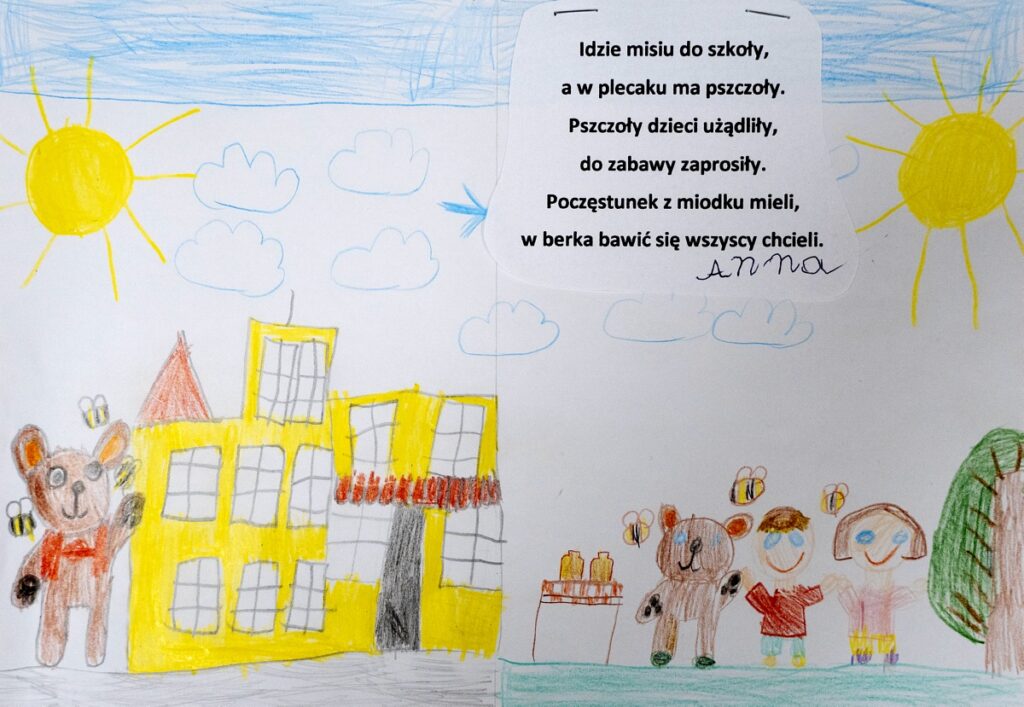 Idzie misiu do szkoły,
a w plecaku ma pszczoły.
Pszczoły dzieci użądliły,
do zabawy zaprosiły.
Poczęstunek z miodku mieli,
w berka bawić się wszyscy chcieli.
Anna